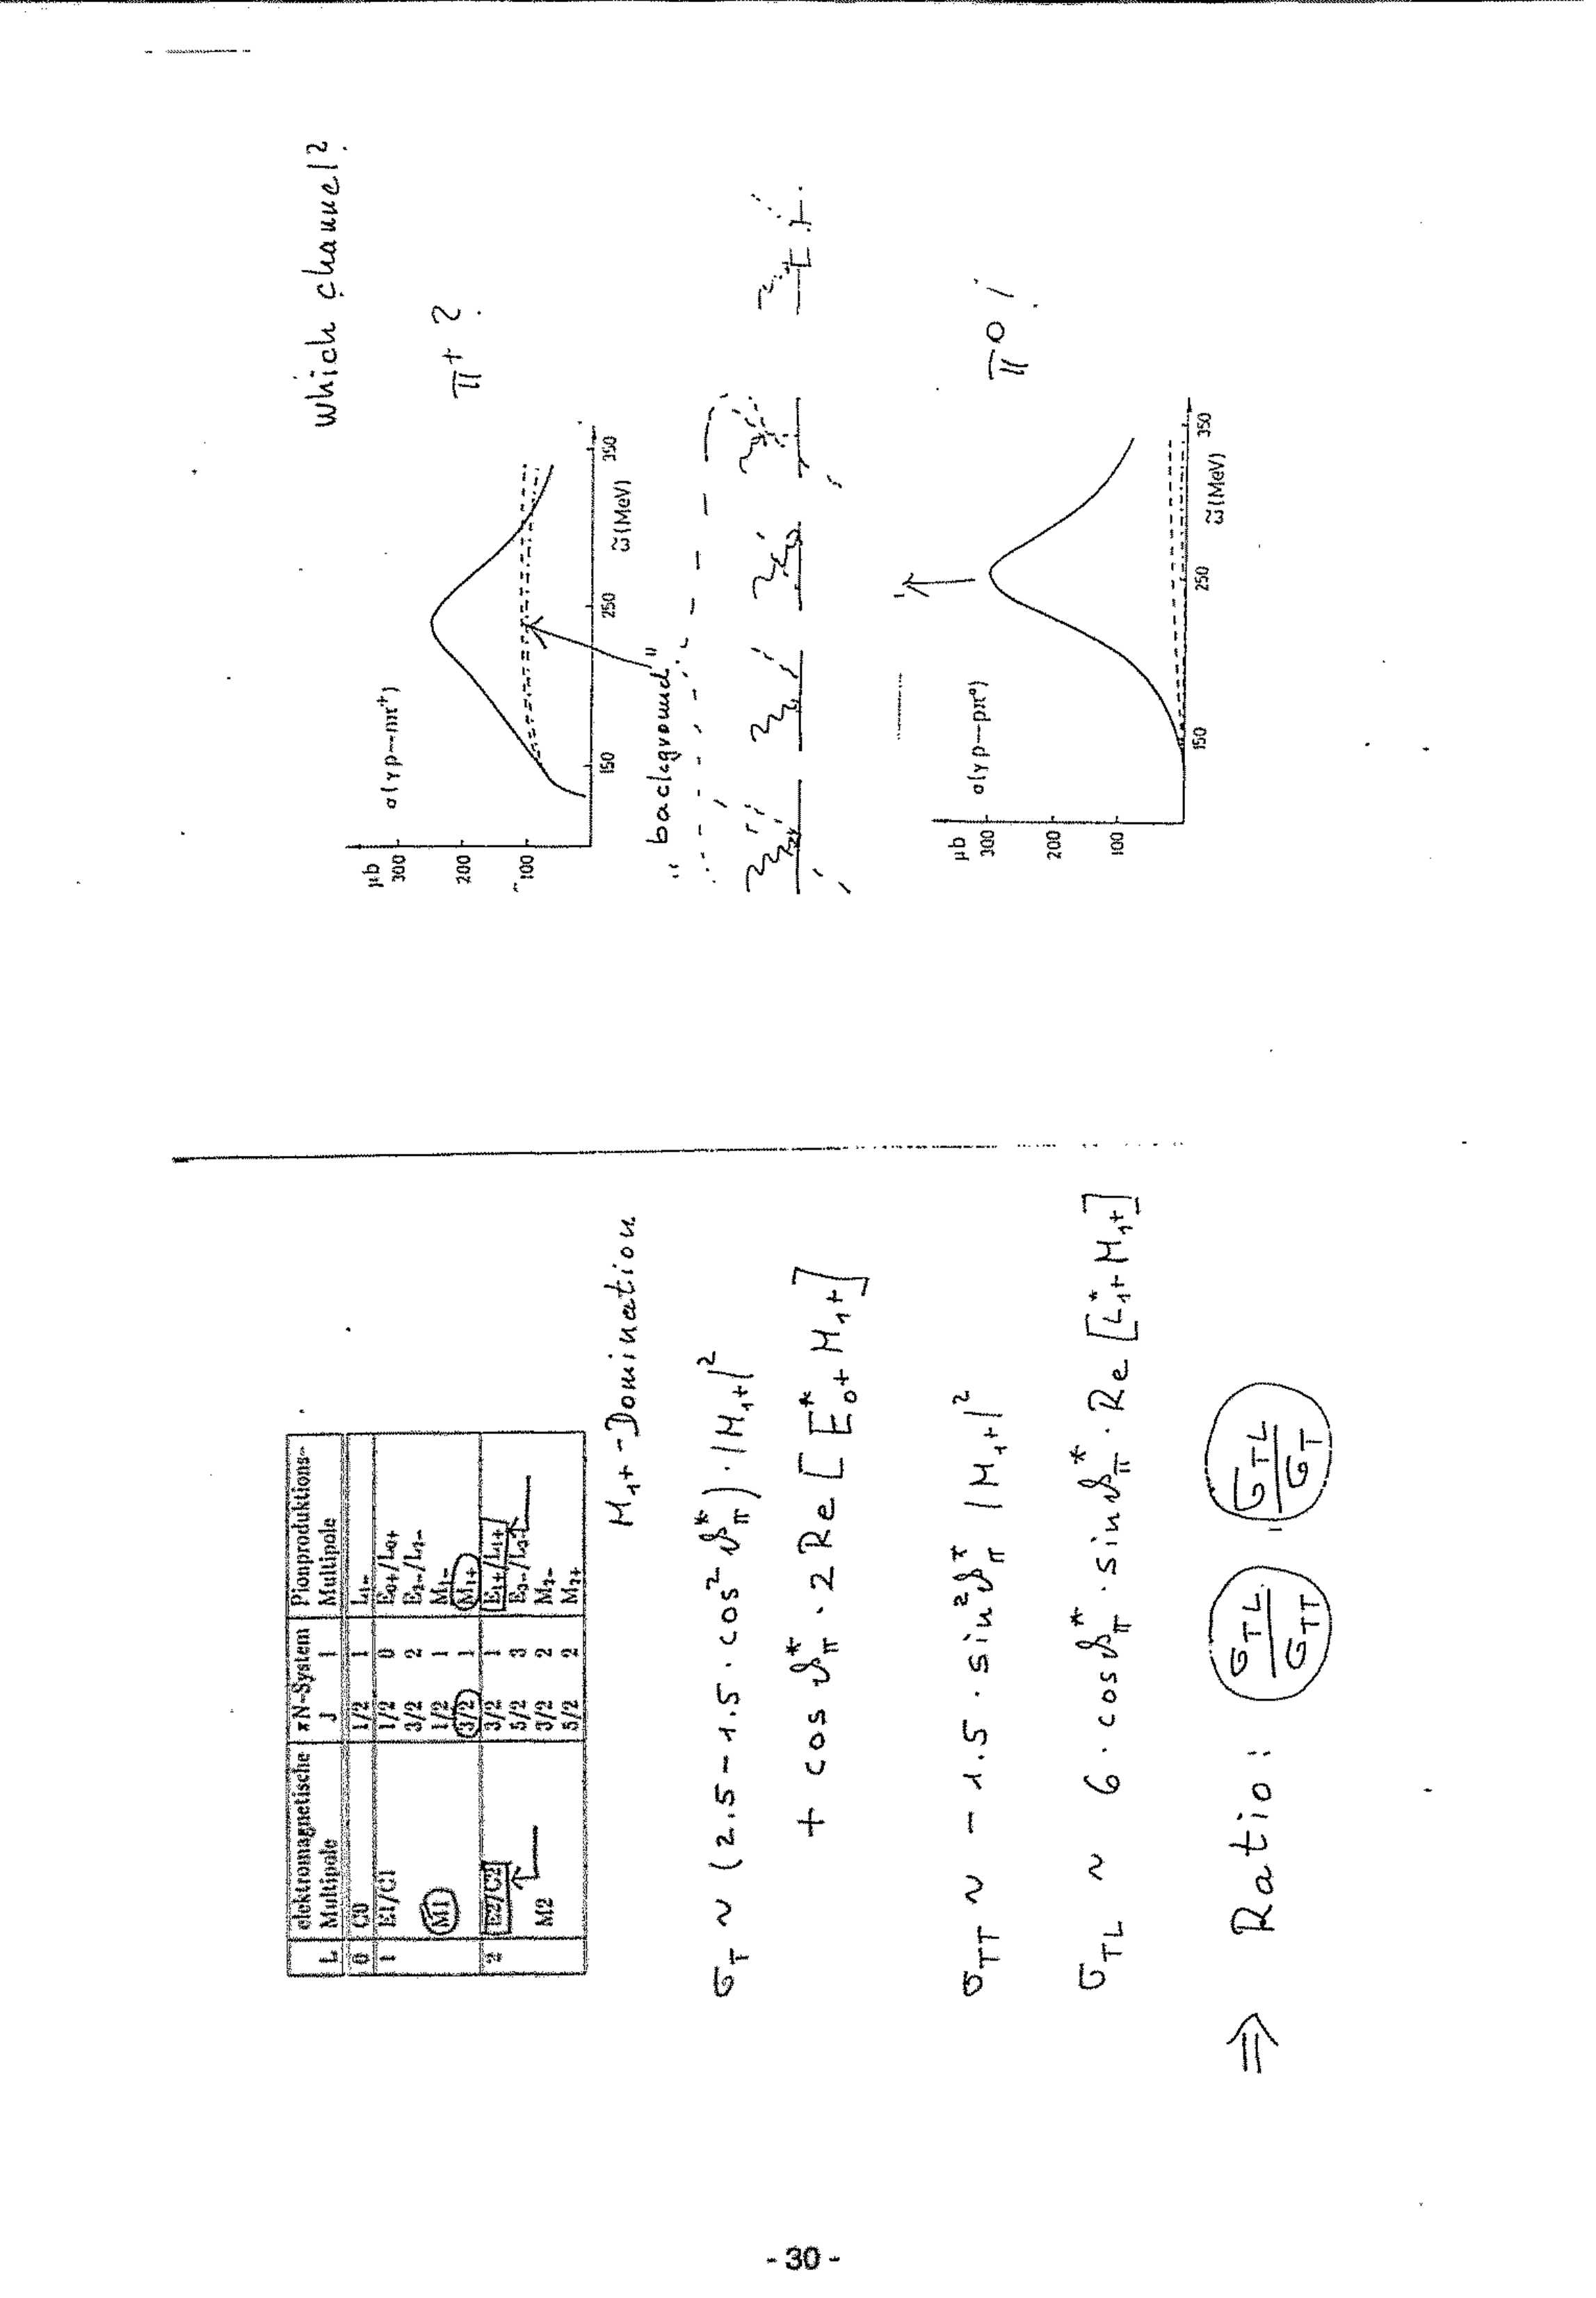 L elektromagnetische πN-System Pionproduktions-
Multipole J l Multipole
0 C0 1/2 1 L₁₋
1 E1/C1 1/2 0 E₀₊/L₀₊
3/2 2 E₂₋/L₂₋
M1 1/2 1 M₁₋
3/2 1 M₁₊
2 E2/C2 3/2 1 E₁₊/L₁₊
5/2 3 E₃₋/L₃₋
M2 3/2 2 M₂₋
5/2 2 M₂₊
M₁₊-Domination
σ_T ~ (2.5 - 1.5 · cos² ϑ_π*) · |M₁₊|²
+ cos ϑ_π* · 2 Re [E₀₊* M₁₊]
σ_TT ~ - 1.5 · sin² ϑ_π* |M₁₊|²
σ_TL ~ 6 · cos ϑ_π* · sin ϑ_π* · Re [L₁₊* M₁₊]
⇒ Ratio: σ_TL/σ_TT , σ_TL/σ_T
Which channel?
μb
300
200
100
σ(γp→nπ⁺)
π⁺ ?
150 250 350
ω̃ (MeV)
"background"
μb
300
200
100
σ(γp→pπ⁰)
π⁰ !
150 250 350
ω̃ (MeV)
- 30 -